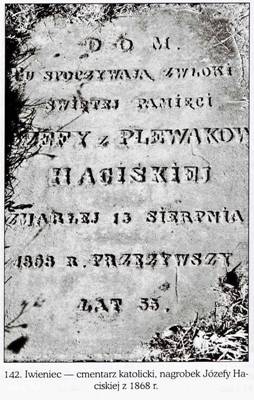 D O M.
TU SPOCZYWAJĄ ZWŁOKI
ŚWIĘTEJ PAMIĘCI
ZEFY z PLEWAKOW
HACIŚKIEJ
ZMARŁEJ 13 SIERPNIA
1868 R. PRZEŻYWSZY
LAT 55.
142. Iwieniec — cmentarz katolicki, nagrobek Józefy Ha-
ciskiej z 1868 r.